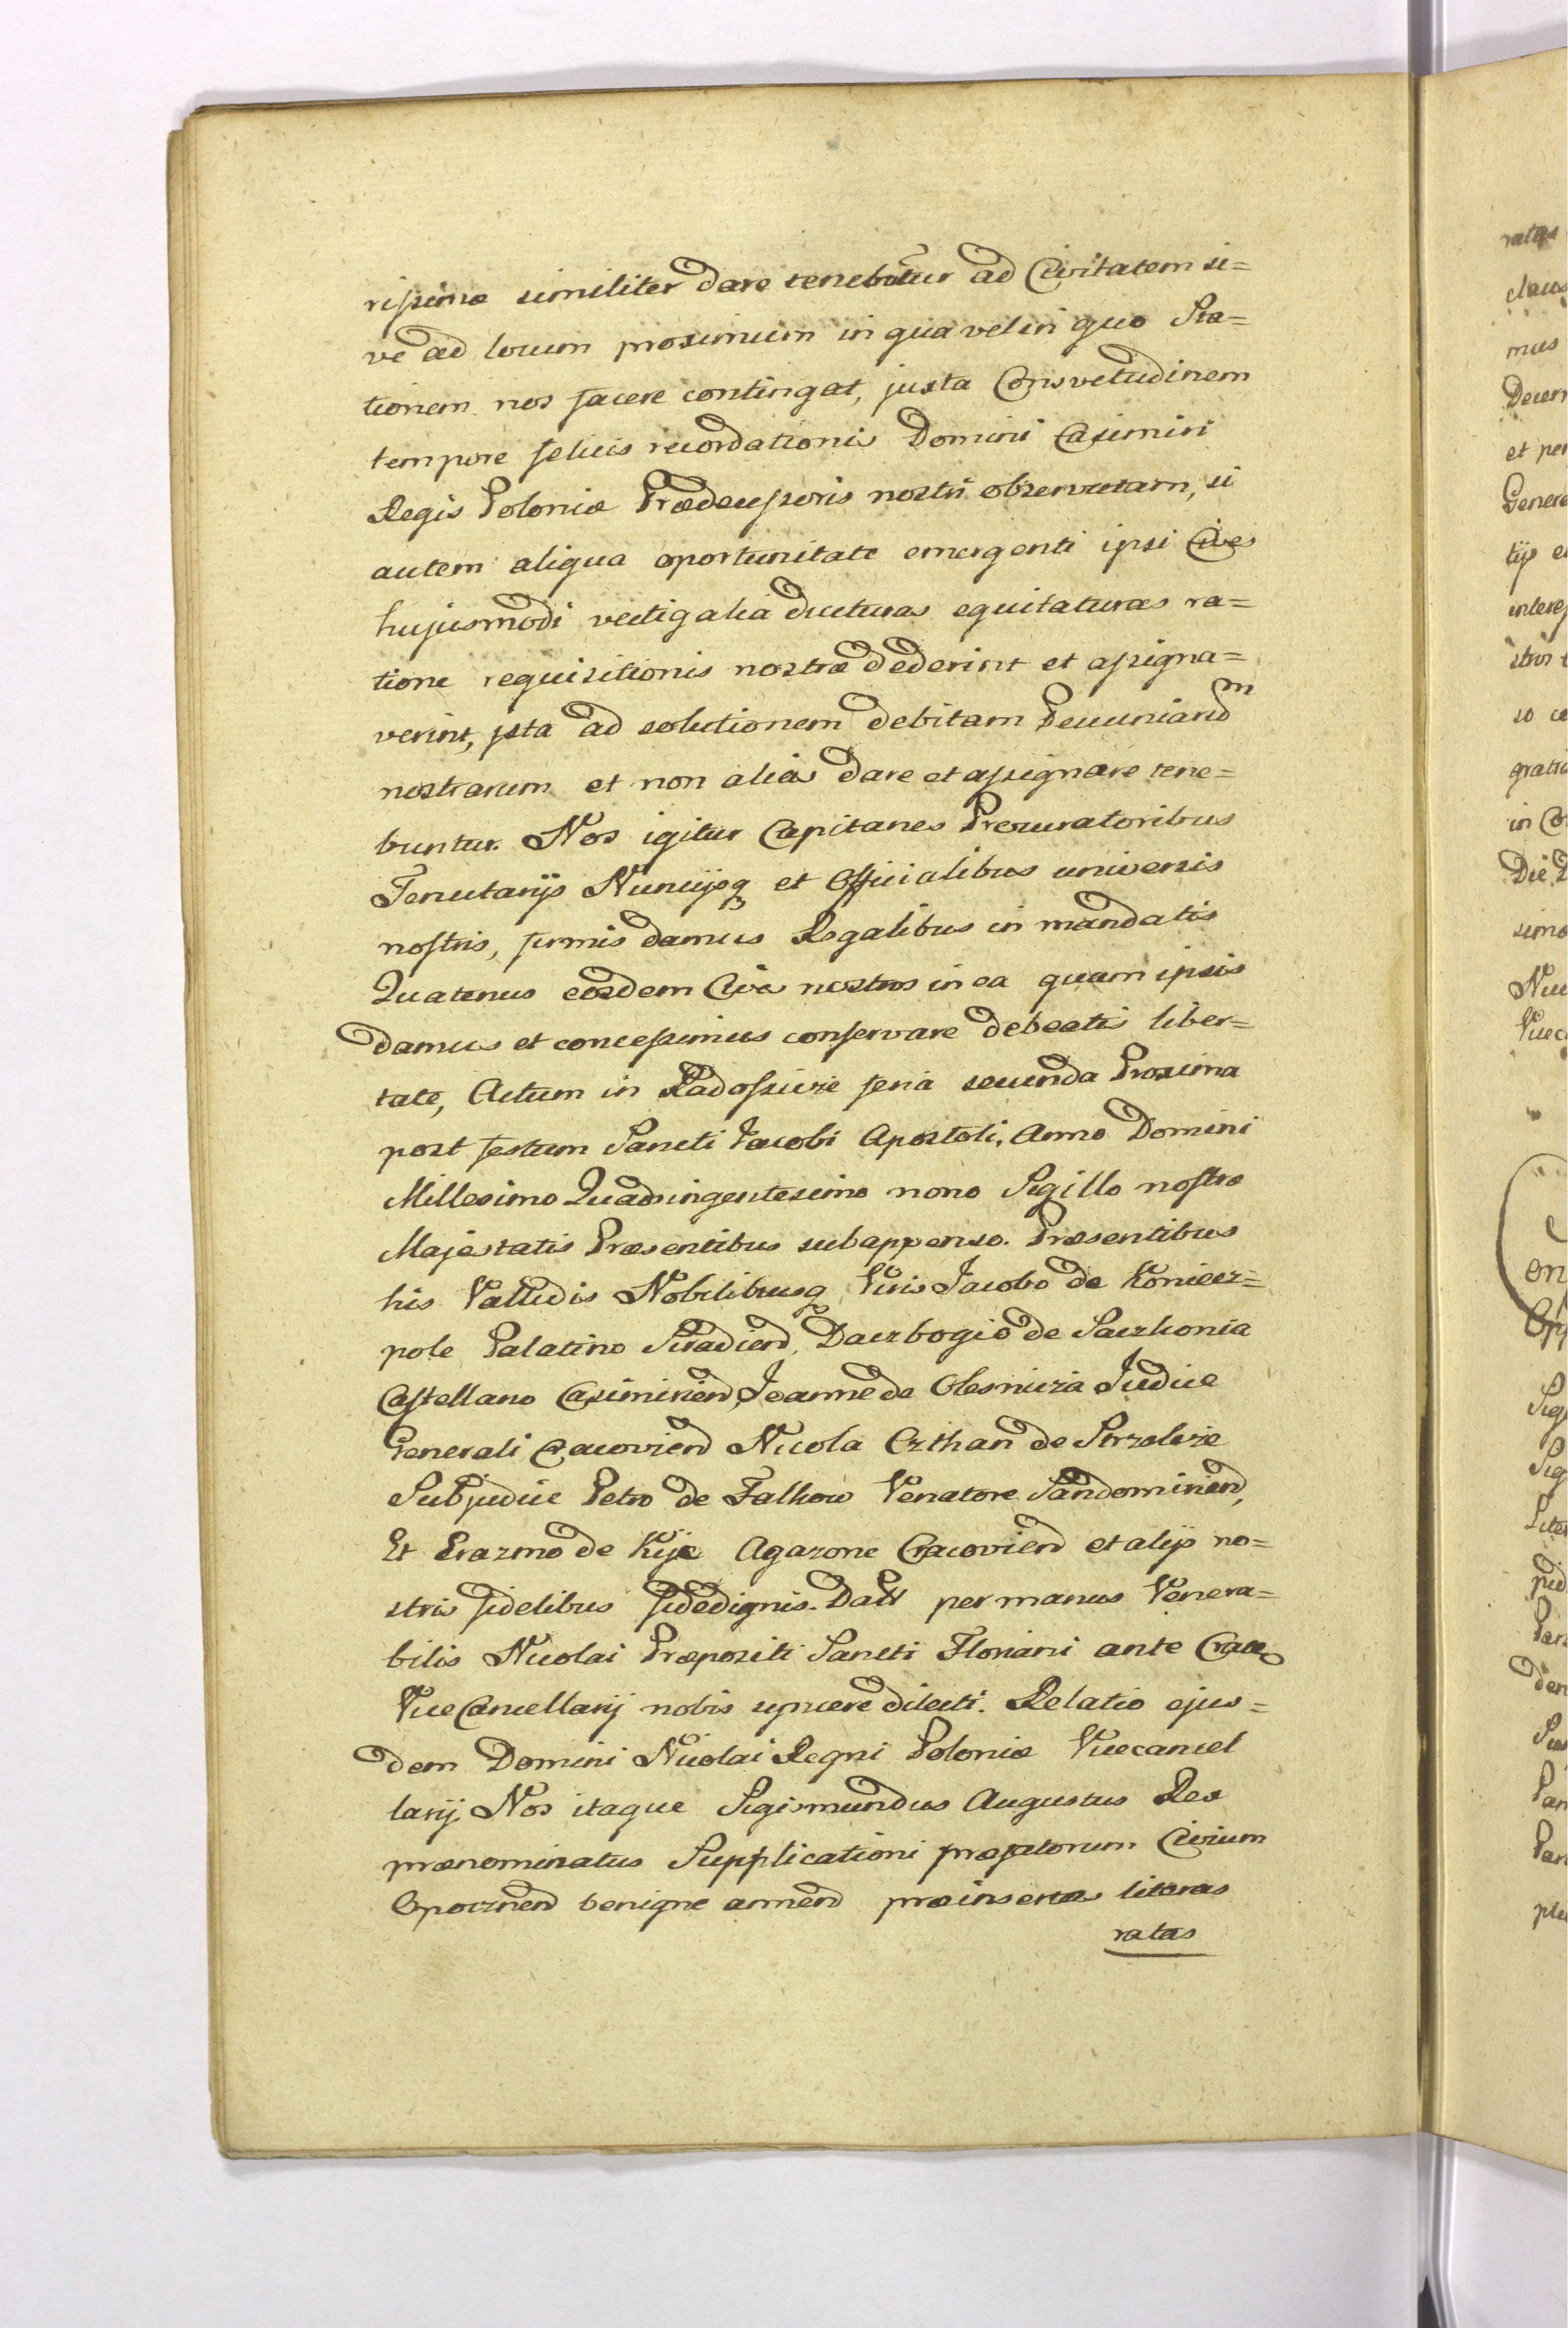 rissimæ similiter dare tenebuntur ad Civitatem si=
ve ad locum proximum in qua vel in quo Sta=
tionem nos facere contingat, juxta Consvetudinem
tempore felicis recordationis Domini Casimiri
Regis Poloniæ Prædecessoris nostri observatam, si
autem aliqua oportunitate emergenti ipsi Cives
hujusmodi vectigalia ducturas equitaturas ra=
tione requisitionis nostræ dederint et assigna=
verint, ista ad solutionem debitam Pecuniaru͞m
nostrarum et non alias dare et assignare tene=
buntur. Nos igitur Capitaneis Procuratoribus
Tenutarijs Nuncijsq et Officialibus universis
nostris, firmis damus Regalibus in mandatis
Quatenus eosdem Cives nostros in ea quam ipsis
damus et concessimus conservare debeatis liber=
tate, Actum in Radossicze feria secunda Proxima
post festum Sancti Jacobi Apostoli, Anno Domini
Millesimo Quadringentesimo nono Sigillo nostræ
Majestatis Præsentibus subappenso. Præsentibus
his Vallidis Nobilibusq Viris Jacobo de Koniecz=
pole Palatino Siradien, Daczbogio de Saczkonia
Castellano Casimirien, Joanne de Olesnicza Judice
Generali Cracovien Nicola Czthan de Strzelcze
Subjudice Petro de Falkow Venatore Sandomirien,
Et Erazmo de Kije Agazone Cracovien et alijs no=
stris fidelibus fidedignis. Datt per manus Venera=
bilis Nicolai Præpositi Sancti Floriani ante Crac
ViceCancellarij nobis syncere dilecti. Relatio ejus=
dem Domini Nicolai Regni Poloniæ Vicecancel
larij Nos itaque Sigismundus Augustus Rex
prænominatus Supplicationi præfatorum Civium
Opocznen benigne annuen præinsertas literas
ratas